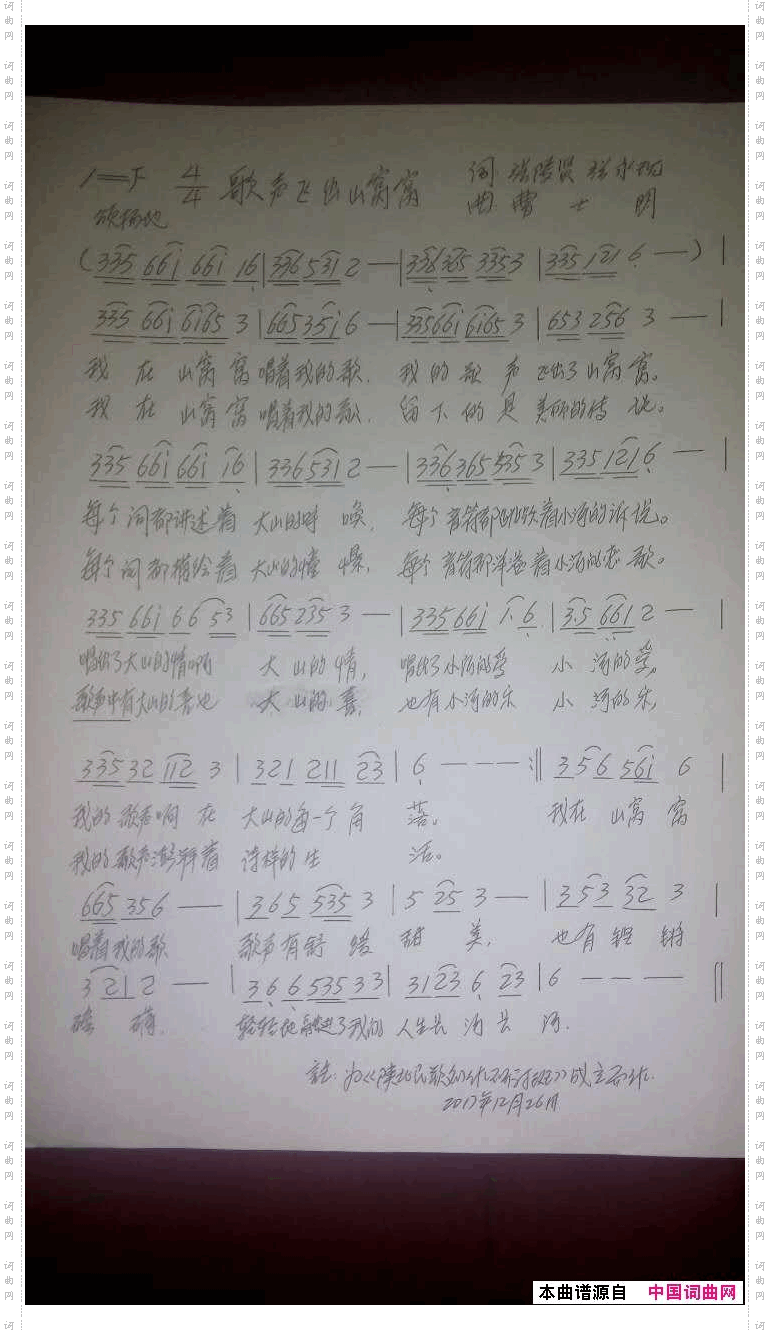 1=F 4/4 歌声飞出山窝窝 词
曲 曹士明
(335 66i 66i 16|336 531 2 —|336 365 335 3|335 121 6 —)|
335 66i 6i65 3|665 35i 6 —|335 66i 6i65 3|653 256 3 —|
我在山窝窝唱着我的歌,我的歌声飞出了山窝窝。
我在山窝窝唱着我的歌,留下的是美丽的传说。
335 66i 66i i6|336 531 2 —|336 365 335 3|335 121 6 —|
每个词都讲述着大山的呼唤,每个音符都着小河的诉说。
每个词都描绘着大山的情,每个音符都洋溢着小河的恋歌。
335 66i 6 6 53|665 235 3 —|335 66i 1·6|3·5 661 2 —|
唱出了大山的情啊 大山的情,唱出了小河的爱 小河的爱。
歌声中有大山的喜也 大山的喜,也有小河的乐 小河的乐,
335 32 112 3|321 211 23|6 — — — :‖ 3 56 56i 6|
我的歌声啊在大山的每一个角落。 我在山窝窝
我的歌声着诗样的生活。
665 356 —|365 535 3|5 25 3 —|3 53 32 3|
唱着我的歌 歌声有舒缓甜美,也有铿锵
3 21 2 —|36 6 535 33|31 23 6 23|6 — — — ‖
轻轻地融进了我的人生长河长河.
注:为《陕北民歌》成立而作.
2017年12月26日
本曲谱源自 中国词曲网
词曲网